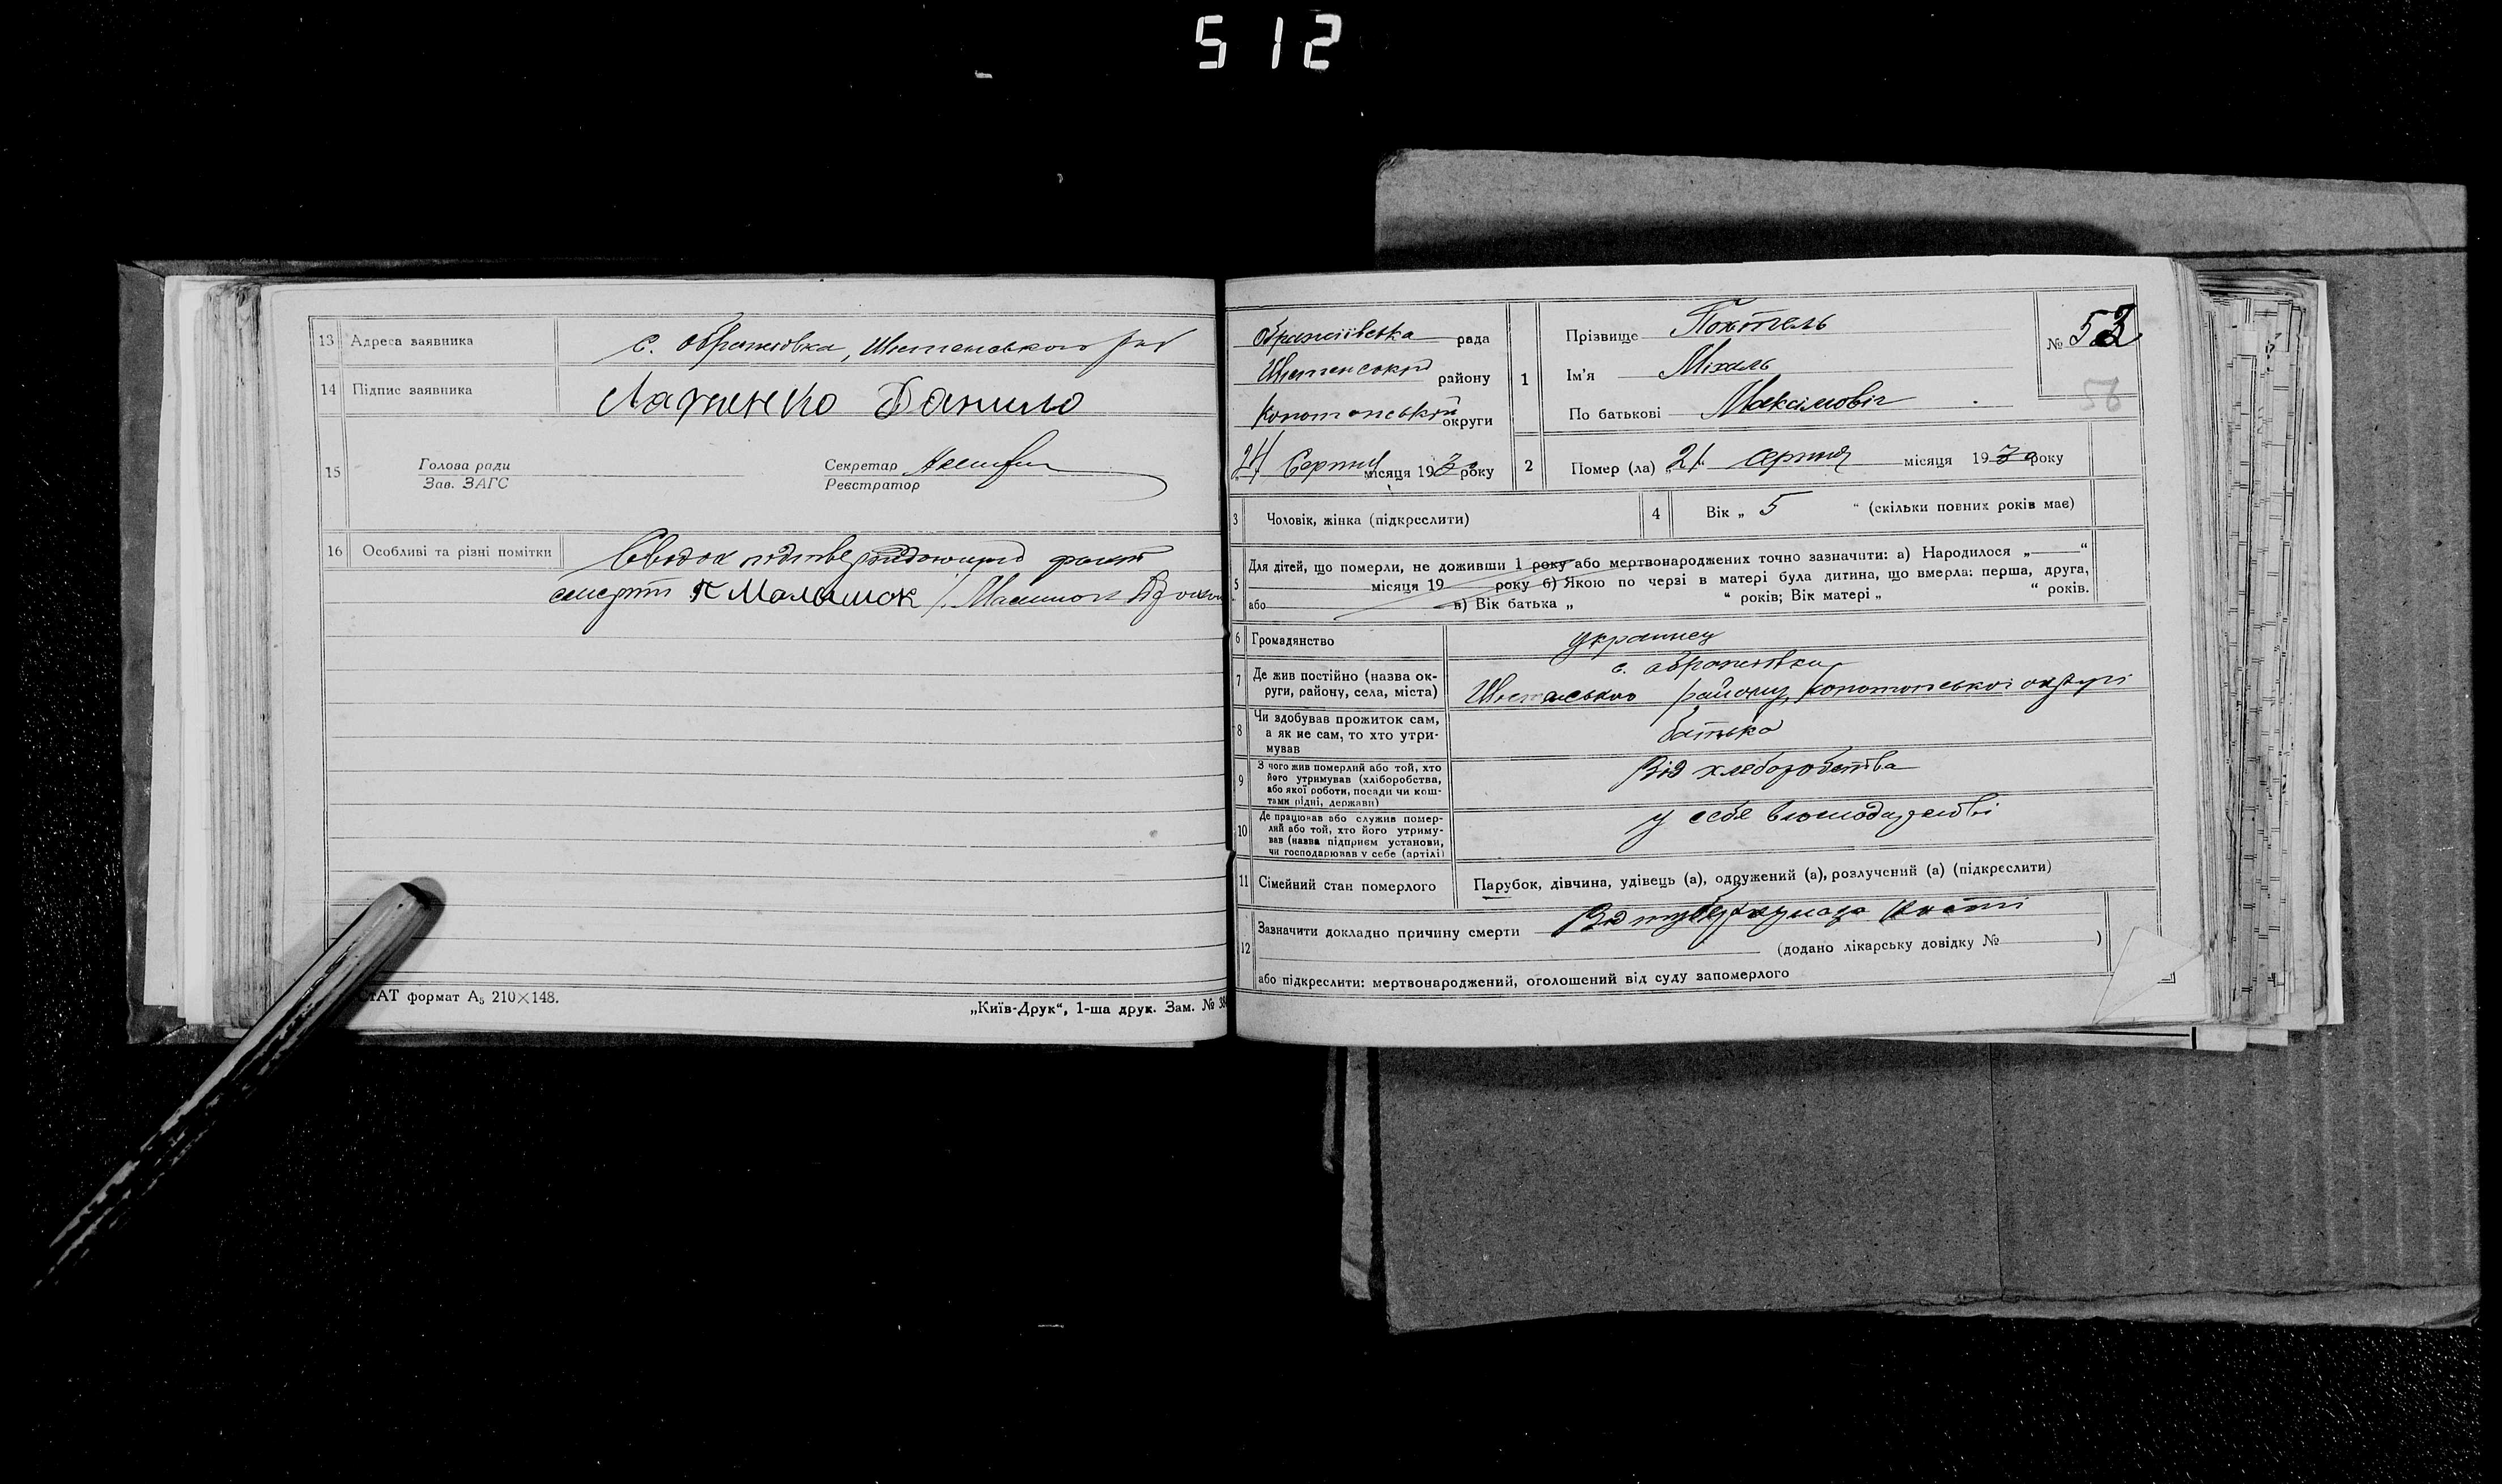 512
13 Адреса заявника с. Ображіевка, Шостенського рай
14 Підпис заявника Лаженко Данило
15 Голова ради
Зав. ЗАГС
Секретар
Реєстратор
16 Особливі та різні помітки Свідок подтверждающий факт
смерті П Малышок /. Малишок
СТАТ формат А₅ 210×148.
„Київ-Друк“, 1-ша друк. Зам. №
Ображіївська рада
Шостенський району
Конотопській округи
21 Серпня місяця 1930 року
1 Прізвище
Ім'я Міхаль
По батькові Максімовіч
№ 53
56
2 Помер (ла) „21“ серпня місяця 1930 року
3 Чоловік, жінка (підкреслити)
4 Вік „ 5 “ (скільки повних років має)
5 Для дітей, що померли, не доживши 1 року або мертвонароджених точно зазначити: а) Народилося „ “
місяця 19 року б) Якою по черзі в матері була дитина, що вмерла: перша, друга,
або в) Вік батька „ “ років; Вік матері „ “ років.
6 Громадянство украинец
7 Де жив постійно (назва округи, району, села, міста) с. Ображіевки
Шостенського району, Конотопської округі
8 Чи здобував прожиток сам,
а як не сам, то хто утри-
мував
батько
9 З чого жив померлий або той, хто
його утримував (хліборобства,
або якої роботи, посади чи кош-
тами рідні, держави)
Від хлеборобства
10 Де працював або служив помер-
лий або той, хто його утриму-
вав (назва підприєм установи,
чи господарював у себе (артілі)
у себе в господарстві
11 Сімейний стан померлого Парубок, дівчина, удівець (а), одружений (а), розлучений (а) (підкреслити)
12 Зазначити докладно причину смерти Від
(додано лікарську довідку № )
або підкреслити: мертвонароджений, оголошений від суду запомерлого